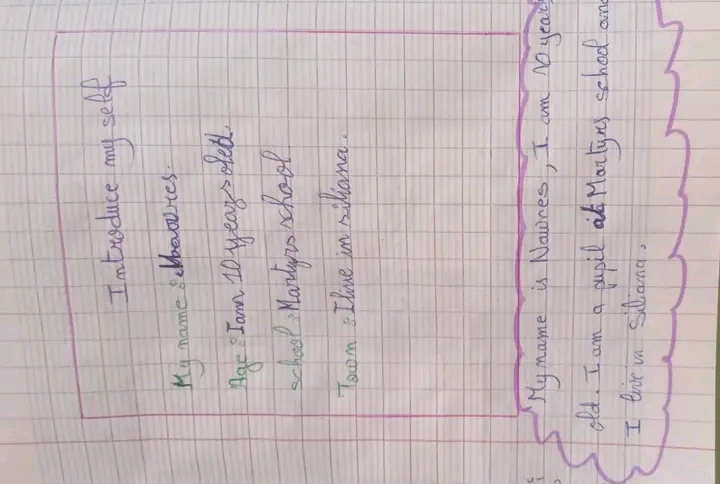 Introduce my self
My name : Nawres.
Age : I am 10 years old.
school : Martyrs school
Town : I live in siliana.
My name is Nawres, I am 10 years
old. I am a pupil at Martyrs school and
I live in Siliana.